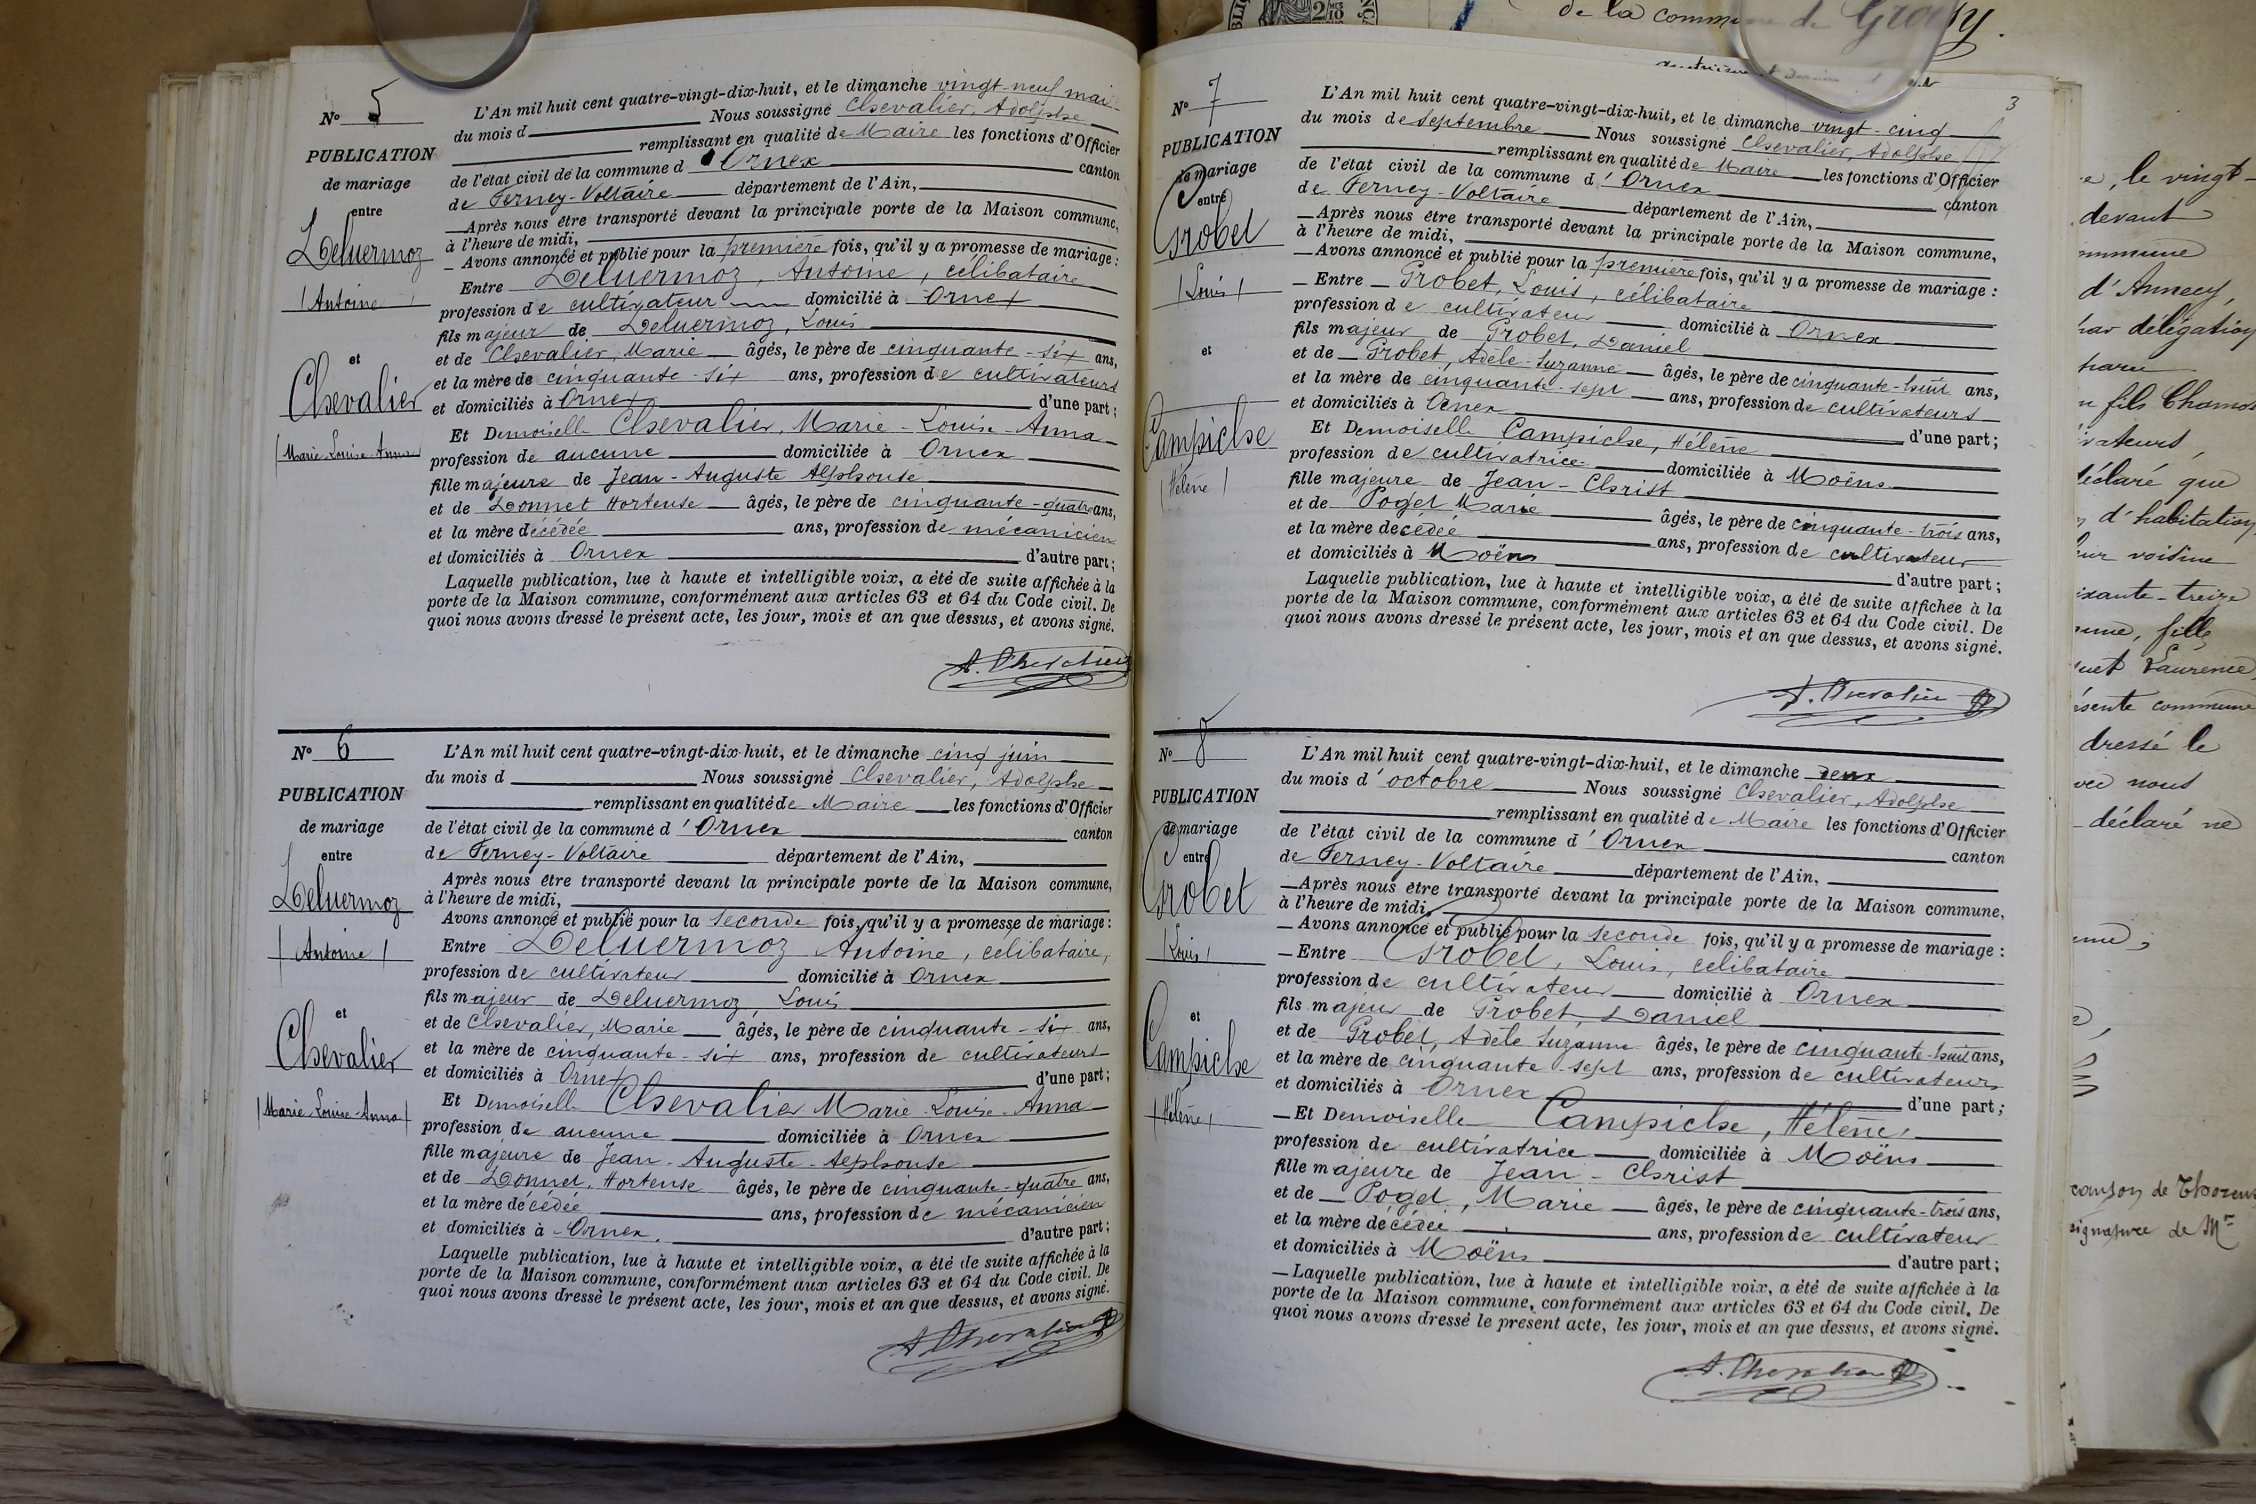 N° 5
PUBLICATION
de mariage
entre
Deluermoz
(Antoine)
et
Chevalier
(Marie-Louise-Anna)
L'An mil huit cent quatre-vingt-dix-huit, et le dimanche vingt-neuf mai
du mois d Nous soussigné Chevalier, Adolphe
remplissant en qualité de Maire les fonctions d'Officier
de l'état civil de la commune d'Ornex canton
de Ferney-Voltaire département de l'Ain,
Après nous être transporté devant la principale porte de la Maison commune,
à l'heure de midi,
Avons annoncé et publié pour la première fois, qu'il y a promesse de mariage :
Entre Deluermoz, Antoine, célibataire
profession de cultivateur domicilié à Ornex
fils majeur de Deluermoz, Louis
et de Chevalier, Marie âgés, le père de cinquante-six ans,
et la mère de cinquante-six ans, profession de cultivateurs
et domiciliés à Ornex d'une part ;
Et Demoiselle Chevalier, Marie-Louise-Anna
profession de aucune domiciliée à Ornex
fille majeure de Jean-Auguste Alphonse
et de Donnet Hortense âgés, le père de cinquante-quatre ans,
et la mère décédée ans, profession de mécanicien
et domiciliés à Ornex d'autre part ;
Laquelle publication, lue à haute et intelligible voix, a été de suite affichée à la
porte de la Maison commune, conformément aux articles 63 et 64 du Code civil. De
quoi nous avons dressé le présent acte, les jour, mois et an que dessus, et avons signé.
A. Chevalier
N° 6
PUBLICATION
de mariage
entre
Deluermoz
(Antoine)
et
Chevalier
(Marie-Louise-Anna)
L'An mil huit cent quatre-vingt-dix-huit, et le dimanche cinq juin
du mois d Nous soussigné Chevalier, Adolphe
remplissant en qualité de Maire les fonctions d'Officier
de l'état civil de la commune d'Ornex canton
de Ferney-Voltaire département de l'Ain,
Après nous être transporté devant la principale porte de la Maison commune,
à l'heure de midi,
Avons annoncé et publié pour la seconde fois, qu'il y a promesse de mariage :
Entre Deluermoz Antoine, célibataire,
profession de cultivateur domicilié à Ornex
fils majeur de Deluermoz, Louis
et de Chevalier, Marie âgés, le père de cinquante-six ans,
et la mère de cinquante-six ans, profession de cultivateurs
et domiciliés à Ornex d'une part ;
Et Demoiselle Chevalier Marie-Louise-Anna
profession de aucune domiciliée à Ornex
fille majeure de Jean-Auguste-Alphonse
et de Donnet, Hortense âgés, le père de cinquante-quatre ans,
et la mère décédée ans, profession de mécanicien
et domiciliés à Ornex. d'autre part ;
Laquelle publication, lue à haute et intelligible voix, a été de suite affichée à la
porte de la Maison commune, conformément aux articles 63 et 64 du Code civil. De
quoi nous avons dressé le présent acte, les jour, mois et an que dessus, et avons signé.
A. Chevalier
de la commune de
3
N° 7
PUBLICATION
de mariage
entre
Grobet
(Louis)
et
Campiche
(Hélène)
L'An mil huit cent quatre-vingt-dix-huit, et le dimanche vingt-cinq
du mois de septembre Nous soussigné Chevalier, Adolphe
remplissant en qualité de Maire les fonctions d'Officier
de l'état civil de la commune d'Ornex canton
de Ferney-Voltaire département de l'Ain,
Après nous être transporté devant la principale porte de la Maison commune,
à l'heure de midi,
Avons annoncé et publié pour la première fois, qu'il y a promesse de mariage :
Entre Grobet, Louis, célibataire
profession de cultivateur domicilié à Ornex
fils majeur de Grobet, Daniel
et de Grobet, Adèle-Suzanne âgés, le père de cinquante-huit ans,
et la mère de cinquante-sept ans, profession de cultivateurs
et domiciliés à Ornex d'une part ;
Et Demoiselle Campiche, Hélène
profession de cultivatrice domiciliée à Moëns
fille majeure de Jean-Christ
et de Poget Marie âgés, le père de cinquante-trois ans,
et la mère décédée ans, profession de cultivateur
et domiciliés à Moëns d'autre part ;
Laquelle publication, lue à haute et intelligible voix, a été de suite affichée à la
porte de la Maison commune, conformément aux articles 63 et 64 du Code civil. De
quoi nous avons dressé le présent acte, les jour, mois et an que dessus, et avons signé.
A. Chevalier
N° 8
PUBLICATION
de mariage
entre
Grobet
(Louis)
et
Campiche
(Hélène)
L'An mil huit cent quatre-vingt-dix-huit, et le dimanche deux
du mois d'octobre Nous soussigné Chevalier, Adolphe
remplissant en qualité de Maire les fonctions d'Officier
de l'état civil de la commune d'Ornex canton
de Ferney-Voltaire département de l'Ain,
Après nous être transporté devant la principale porte de la Maison commune,
à l'heure de midi,
Avons annoncé et publié pour la seconde fois, qu'il y a promesse de mariage :
Entre Grobet, Louis, célibataire
profession de cultivateur domicilié à Ornex
fils majeur de Grobet, Daniel
et de Grobet, Adèle Suzanne âgés, le père de cinquante-huit ans,
et la mère de cinquante-sept ans, profession de cultivateurs
et domiciliés à Ornex d'une part ;
Et Demoiselle Campiche, Hélène,
profession de cultivatrice domiciliée à Moëns
fille majeure de Jean-Christ
et de Poget, Marie âgés, le père de cinquante-trois ans,
et la mère décédée ans, profession de cultivateur
et domiciliés à Moëns d'autre part ;
Laquelle publication, lue à haute et intelligible voix, a été de suite affichée à la
porte de la Maison commune, conformément aux articles 63 et 64 du Code civil. De
quoi nous avons dressé le présent acte, les jour, mois et an que dessus, et avons signé.
A. Chevalier
le vingt-
devant
d'Annecy,
délégation
fils
déclaré que
d'habitation
voisine
-treize
fille
Laurence
commune
dressé le
nous
déclaré né
de Thorens
signature de Mr